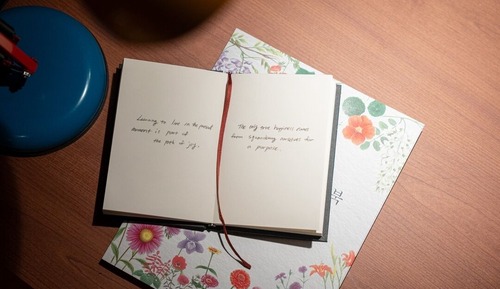 Learning to live in the present
moment is part of
the path of joy.
The only true happiness comes
from squandering ourselves for
a purpose.
북